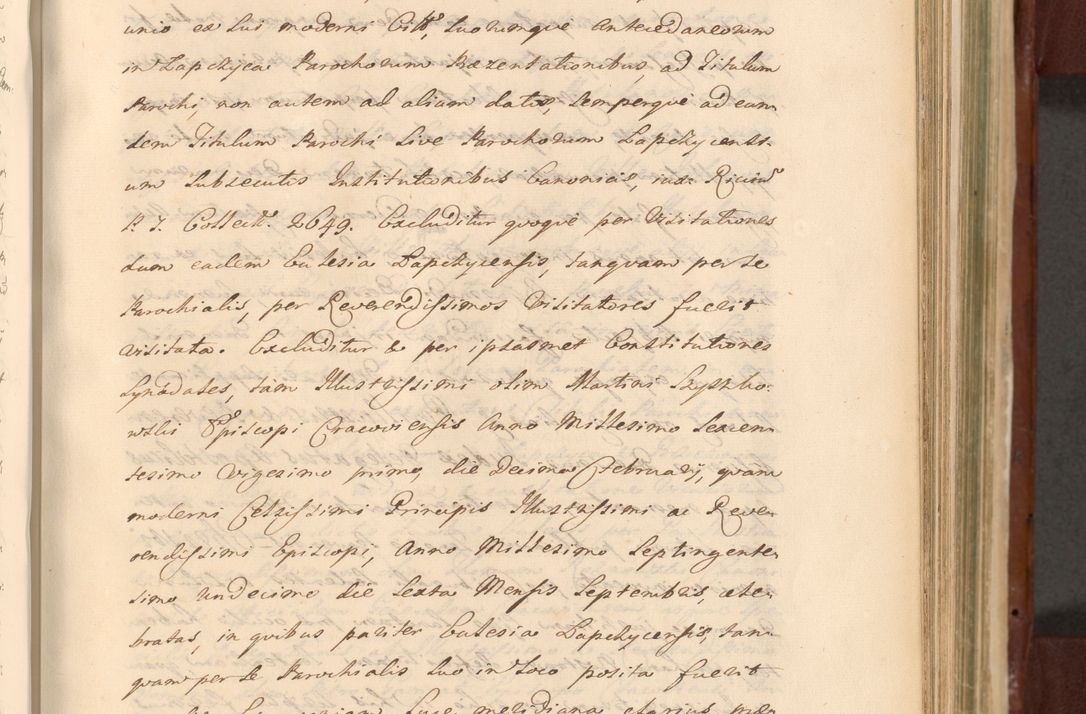 unio ex sui moderni Citti, suorumque Antecedaneorum
in Lapczyca Parochorum Præzentationibus, ad Titulum
Parochi, non autem ad alium datis, semperque ad eun-
dem Titulum Parochi sive Parochorum Lapczycensi-
um subsecutis Institutionibus Canonicis, iux:
P. J. Collect. 2649. Excluditur quoque per Visitationes
dum eadem Eclesia Lapczycensis, tanquam per se
Parochialis, per Reverendissimos Visitatores fuerit
visitata. Excluditur & per ipsasmet Constitutiones
Synodales, tam Illustrissimi olim Martini Szyszko-
wski Episcopi Cracoviensis Anno Millesimo Sexcen-
tesimo Vigesimo primo, die Decima Februarij, quam
moderni Celsissimi Principis Illustrissimi ac Reve-
rendissimi Episcopi, Anno Millesimo Septingente-
simo Undecimo die Sexta Mensis Septembris, cele-
bratas, in quibus pariter Eclesia Lapczycensis, tan-
quam per se Parochialis suo in Loco posita fuerit
luce meridiana clarius